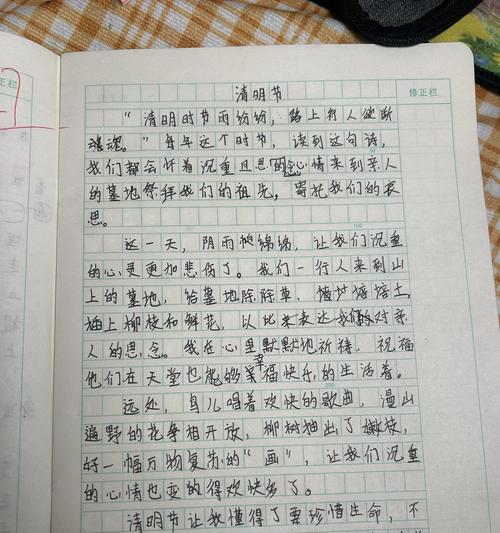 清明节
修正栏
"清明时节雨纷纷，路上行人欲断
魂魂。"每年这个时节，读到这句诗，
我们都会怀着沉重且思念的心情来到亲人
的墓地祭拜我们的祖先，寄托我们的哀
思。
这一天，阴雨绵绵，让我们沉重
的心灵更加悲伤了。我们一行人来到山
上的墓地，给墓地除除草、培培土，
插上柳枝和鲜花，以此来表达我们对亲
人的思念。我在心里默默地祈祷，祝福
他们在天堂也能够幸福快乐的生活着。
远处，鸟儿唱着欢快的歌曲，漫山
遍野的花争相开放，柳树抽出了嫩枝，
好一幅万物复苏的"画"，让我们沉重
的心情也变的得欢快多了。
清明节让我懂得了要珍惜生命，不